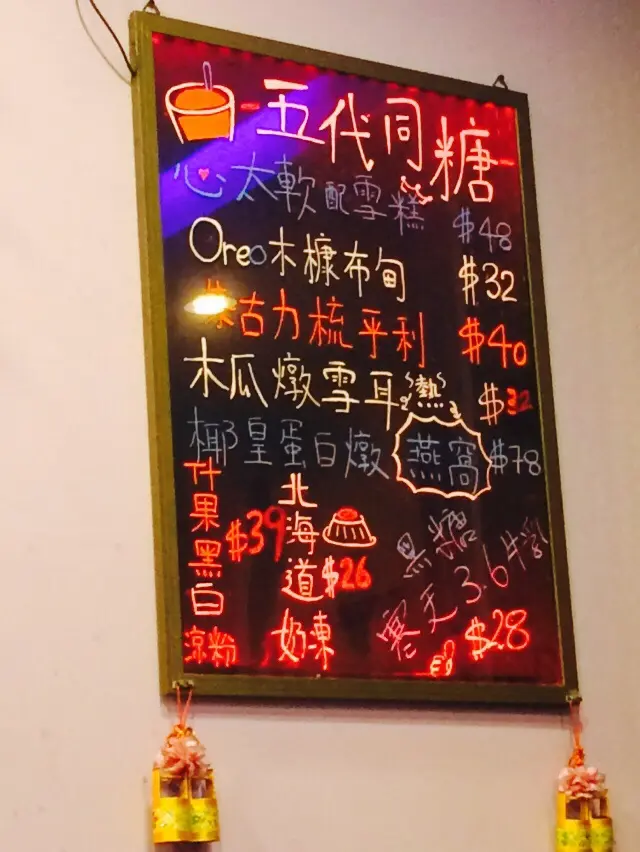 五代同糖
心太軟配雪糕 $48
Oreo木糠布甸 $32
朱古力梳乎利 $40
木瓜燉雪耳 熱 $32
椰皇蛋白燉燕窩 $78
什果黑白涼粉 $39
北海道奶凍 $26
黑糖
寒天3.6牛乳
$28